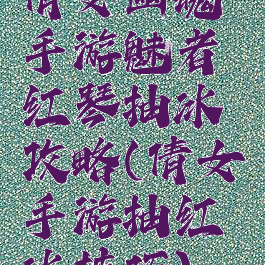 倩女幽魂
手游魅者
红琴抽冰
攻略(倩女
手游抽红